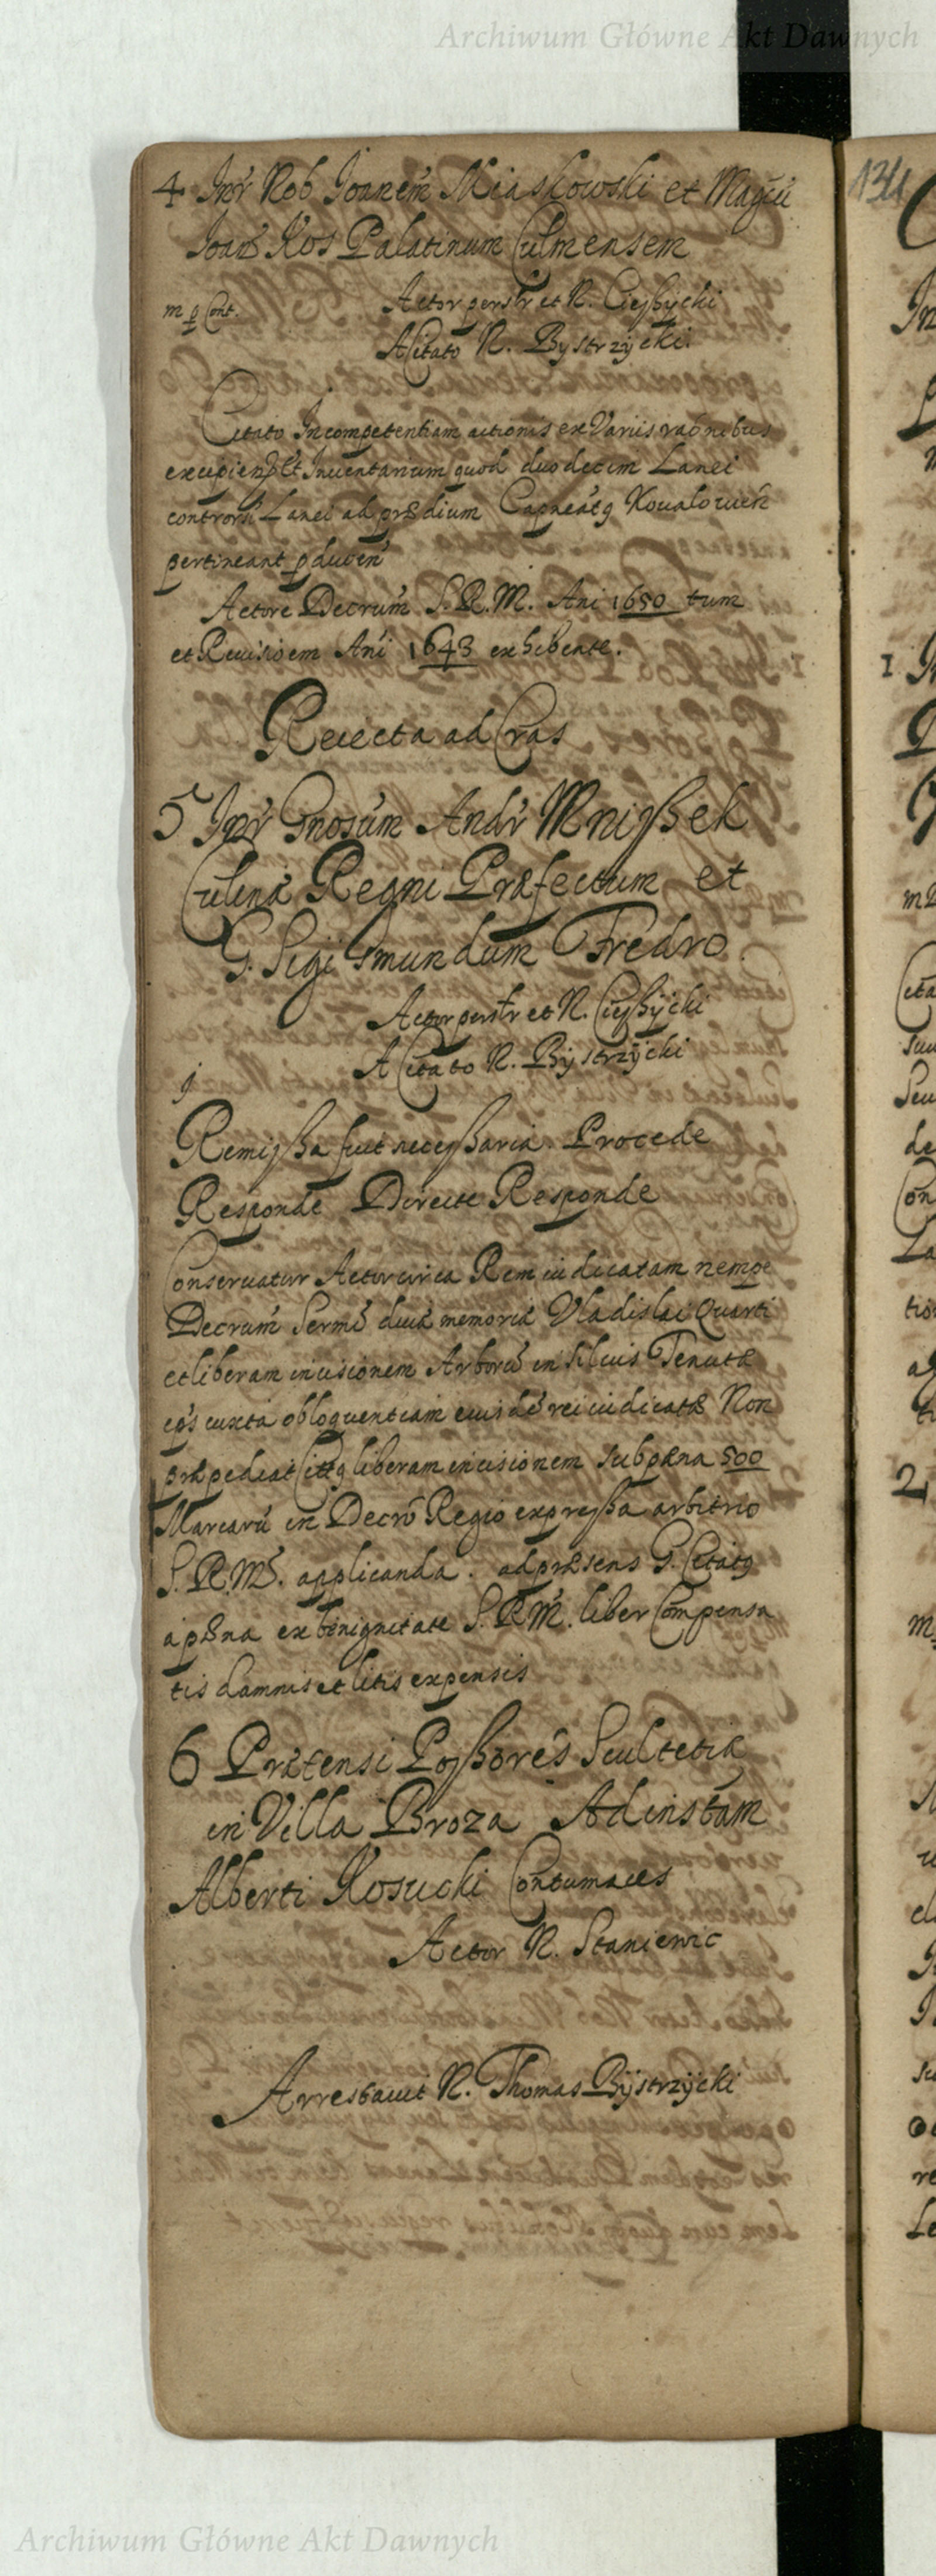 Archiwum Główne Akt Dawnych
131
4 Inr Nob Joanem Miaskowski et Magcu
Joan Kos Palatinum Culmensem
Actor personr et N. Cieszycki
m p Cont.
A Citato N. Bystrzycki.
Citato Incompetentiam actionis ex Variis raonibus
excipien et Inventarium quod duodecim Lanei
controrsi Lanei ad prædium Koualowień
pertineant pducen
Actore Decrum S.R.M. Ani 1650 tum
et Reuisioem Ani 1643 exhibente.
Reiecta ad Cras
5 Inr Gnosum Andr Mniszek
Culinæ Regni Præfectum et
G. Sigismundum Fredro.
Actor personr et N. Cieszycki
A Citato N. Bystrzycki
j.
Remissa fuit necessaria. Procede
Responde Directe Responde
Conseruatur Actor circa Rem iudicatam nempe
Decrum Sermi diuæ memoriæ Vladislai Quarti
et liberam incisionem Arboru in Siluis Tenutæ
eps iuxta obloquentiam eiusde rei iudicatæ Non
præpediat Cit9 liberam incisionem sub pæna 500
Marcaru in Decro Regio expressa arbitrio
S.R.M. applicanda. ad præsens G. Citat9
a pæna ex benignitate S.R.M. liber Compensa
tis damnis et litis expensis
6 Prætensi Possores Scultetiæ
in Villa Broza Ad instam
Alberti Kosucki Contumaces
Actor N. Staniewic
Arrestauit N. Thomas Bystrzycki
Archiwum Główne Akt Dawnych